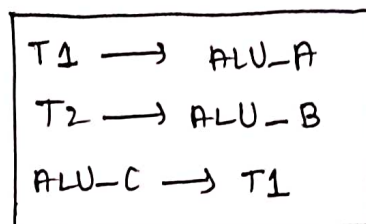 T1 → ALU_A
T2 → ALU_B
ALU_C → T1